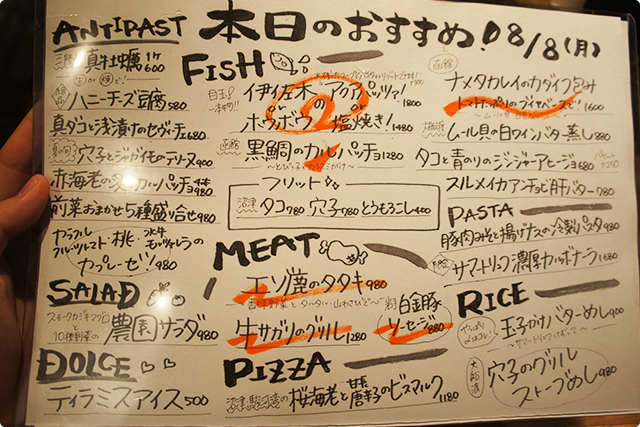 本日のおすすめ! 8/8(月)
ANTIPAST
真牡蠣 1ケ 600
ハニーチーズ豆腐 580
真ダコと浅漬けのセヴィーチェ 680
穴子とジャガイモのテリーヌ 900
赤海老の炙りカルパッチョ
前菜おまかせ5種盛合せ 980
カラフル
フルーツトマト・桃・水牛モッツァレラの
カプレーゼ!! 980
SALAD
スモークカジキマグロと
10種野菜の
農園サラダ 980
DOLCE
ティラミスアイス 500
FISH
目玉!
伊佐木のアクアパッツァ!
or
ホウボウの塩焼き! 1480
函館
黒鯛のカルパッチョ 1280
フリット
沼津
タコ 780 穴子 780 とうもろこし 400
MEAT
エゾ鹿のタタキ 980
牛サガリのグリル 1280
白金豚
ソーセージ 880
PIZZA
桜海老と葉唐辛子のビスマルク 1180
ナメタカレイのカダイフ包み
トマトたっぷりのブイヤベースで! 1600
ムール貝の白ワインバタ蒸し 880
タコと青のりのジンジャーアヒージョ 680
スルメイカアンチョビ肝バター 780
PASTA
豚肉みそと揚げナスの冷製パスタ 980
サマートリュフ濃厚カルボナーラ 1680
RICE
玉子かけバターめし 900
大船渡
穴子のグリル
ストーブめし 980